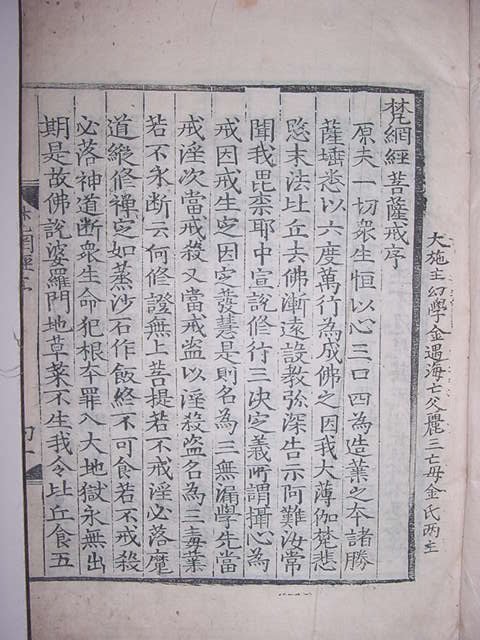 大施主幻學金遇海亡父麗三亡母金氏兩主
梵網經菩薩戒序
原夫一切衆生恒以心三口四為造業之夲諸勝
薩埵悉以六度萬行為成佛之因我大薄伽梵悲
愍末法比丘去佛漸遠設教弥深告示阿難汝常
聞我毘柰耶中宣說修行三决定義所謂攝心為
戒因戒生定因定發慧是則名為三無漏學先當
戒淫次當戒殺又當戒盜以淫殺盜名為三毒業
若不永断云何修證無上菩提若不戒淫必落魔
道縱修禪定如蒸沙石作飯終不可食若不戒殺
必落神道断衆生命犯根夲罪入大地獄永無出
期是故佛說婆羅門地草菜不生我令比丘食五